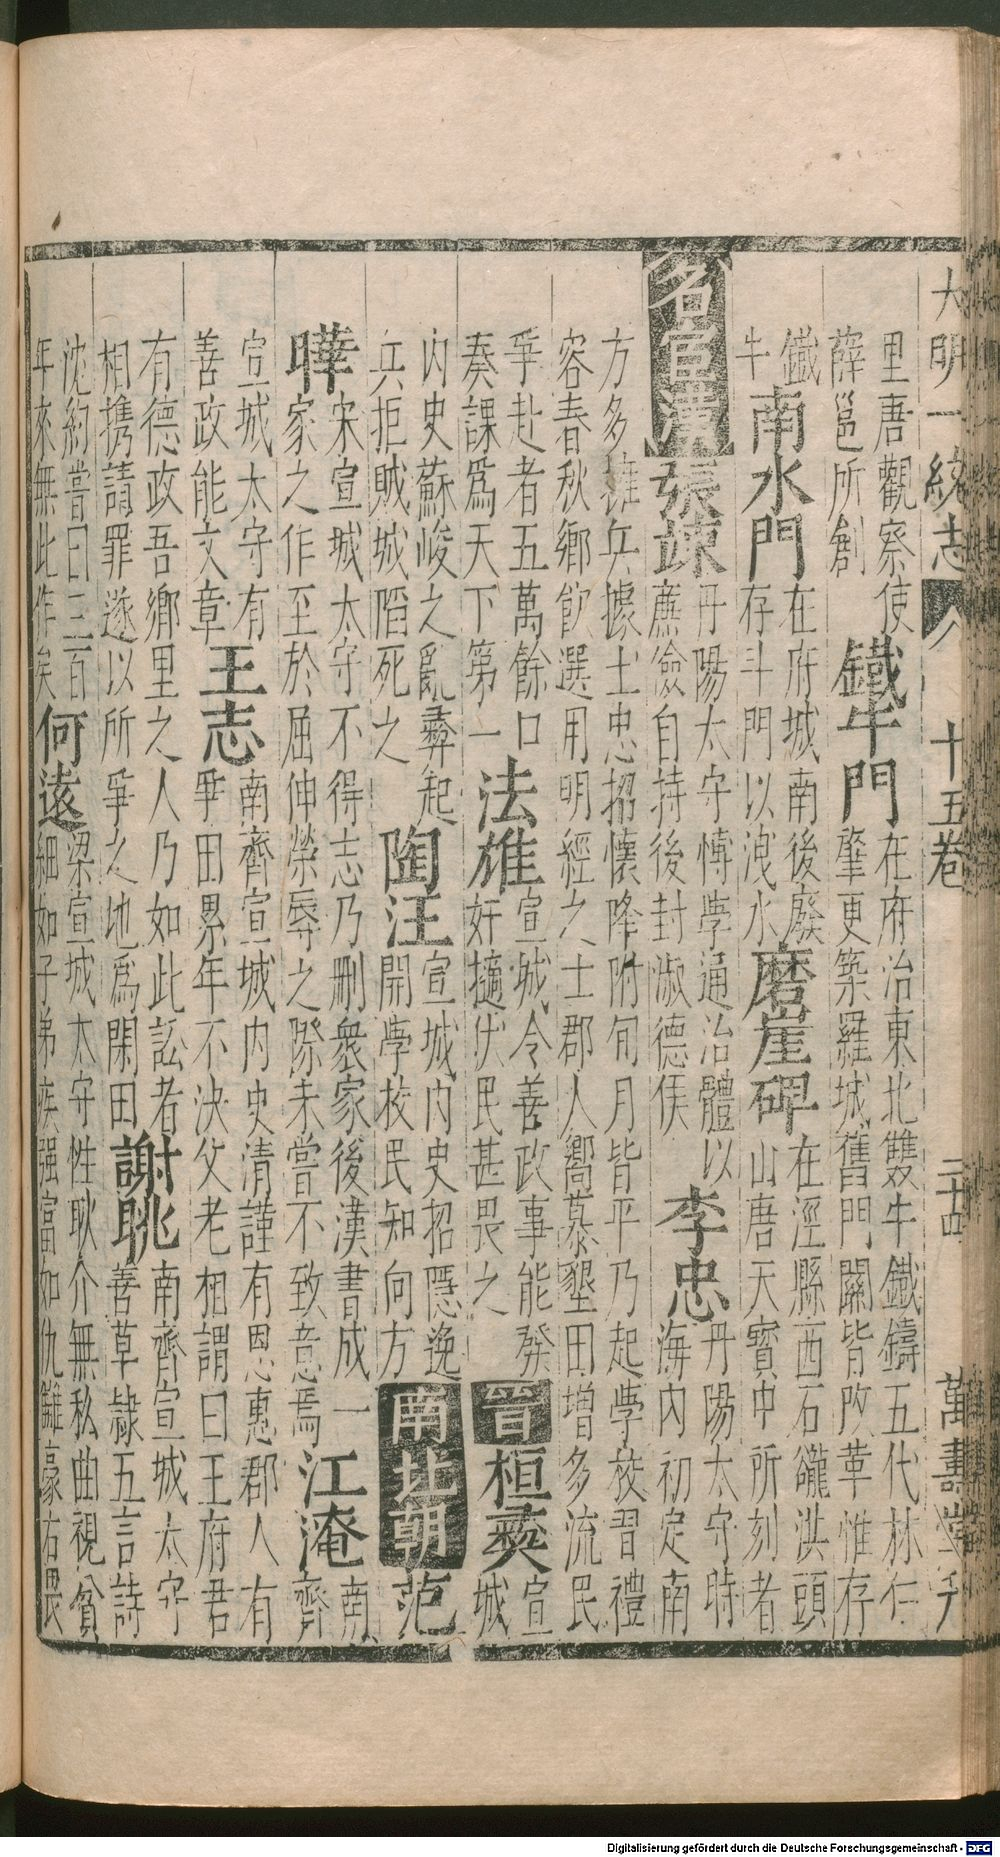 大明一統志 十五卷 二十四 萬壽堂刊
里唐觀察使
薛邕所創
鐵牛門
在府治東北雙牛鐵鑄五代林仁
肇更築羅城舊門關皆改革惟存
鐵
牛
南水門
在府城南後廢
存斗門以洩水
磨崖碑
在涇縣西石䃧洪頭
山唐天寶中所刻者
名宦
漢
張竦
丹陽太守博學通治體以
廉儉自持後封淑德侯
李忠
丹陽太守時
海內初定南
方多擁兵據土忠招懷降附旬月皆平乃起學校習禮
容春秋鄉飲選用明經之士郡人嚮慕墾田增多流民
爭赴者五萬餘口
奏課爲天下第一
法雄
宣城令善政事能發
奸擿伏民甚畏之
晉
桓彞
宣
城
內史蘇峻之亂彞起
兵拒賊城陷死之
陶汪
宣城內史招隱逸
開學校民知向方
南北朝
范
曄
宋宣城太守不得志乃刪衆家後漢書成一
家之作至於屈伸榮辱之際未嘗不致意焉
江淹
南
齊
宣城太守有
善政能文章
王志
南齊宣城內史清謹有恩惠郡人有
爭田累年不決父老相謂曰王府君
有德政吾鄉里之人乃如此訟者
相携請罪遂以所爭之地爲閑田
謝朓
南齊宣城太守
善草隸五言詩
沈約嘗曰二百
年來無此作矣
何遠
梁宣城太守性耿介無私曲視貧
細如子弟疾强富如仇讎豪右畏
Digitalisierung gefördert durch die Deutsche Forschungsgemeinschaft - DFG